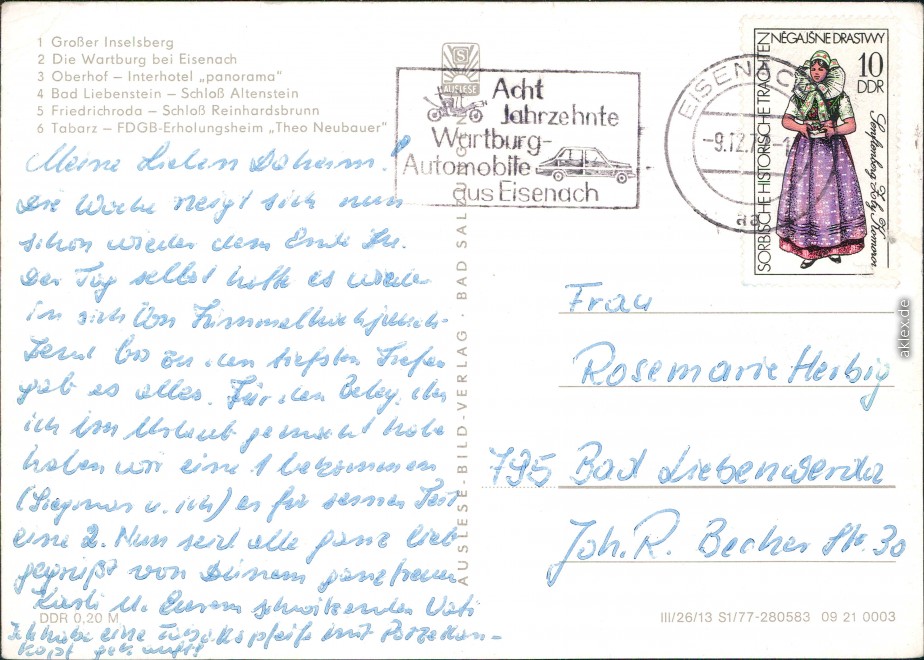 1 Großer Inselsberg
2 Die Wartburg bei Eisenach
3 Oberhof – Interhotel „panorama"
4 Bad Liebenstein – Schloß Altenstein
5 Friedrichroda – Schloß Reinhardsbrunn
6 Tabarz – FDGB-Erholungsheim „Theo Neubauer"
Meine Lieben Daheim!
Die Woche neigt sich nun
schon wieder dem Ende zu.
Der Tag selbst hatte es wieder
in sich von Himmelhochjauch-
zend bis zu den tiefsten Tiefen
gab es alles. Für den Beleg, den
ich im Urlaub gemacht habe
haben wir eine 1 bekommen
( u. ich) er für seinen Test
eine 2. Nun seid alle ganz lieb
gegrüßt von Deinem ganz treuen
u. Eurem schwitzenden Vati
Ich habe eine Tabakspfeife mit Porzellan-
kopf gekauft!
DDR 0,20 M
AUSLESE-BILD-VERLAG · BAD SALZUNGEN
S
AUSLESE
Acht
Jahrzehnte
Wartburg-
Automobile
aus Eisenach
EISENACH
-9.12.7
aa
SORBISCHE HISTORISCHE TRACHTEN
NĚGAJŠNE DRASTWY
10
DDR
Senftenberg Zły Komorow
Frau
Rosemarie Herbig
795 Bad Liebenwerda
Joh. R. Becher Str. 30
III/26/13 S1/77-280583 09 21 0003
aklex.de